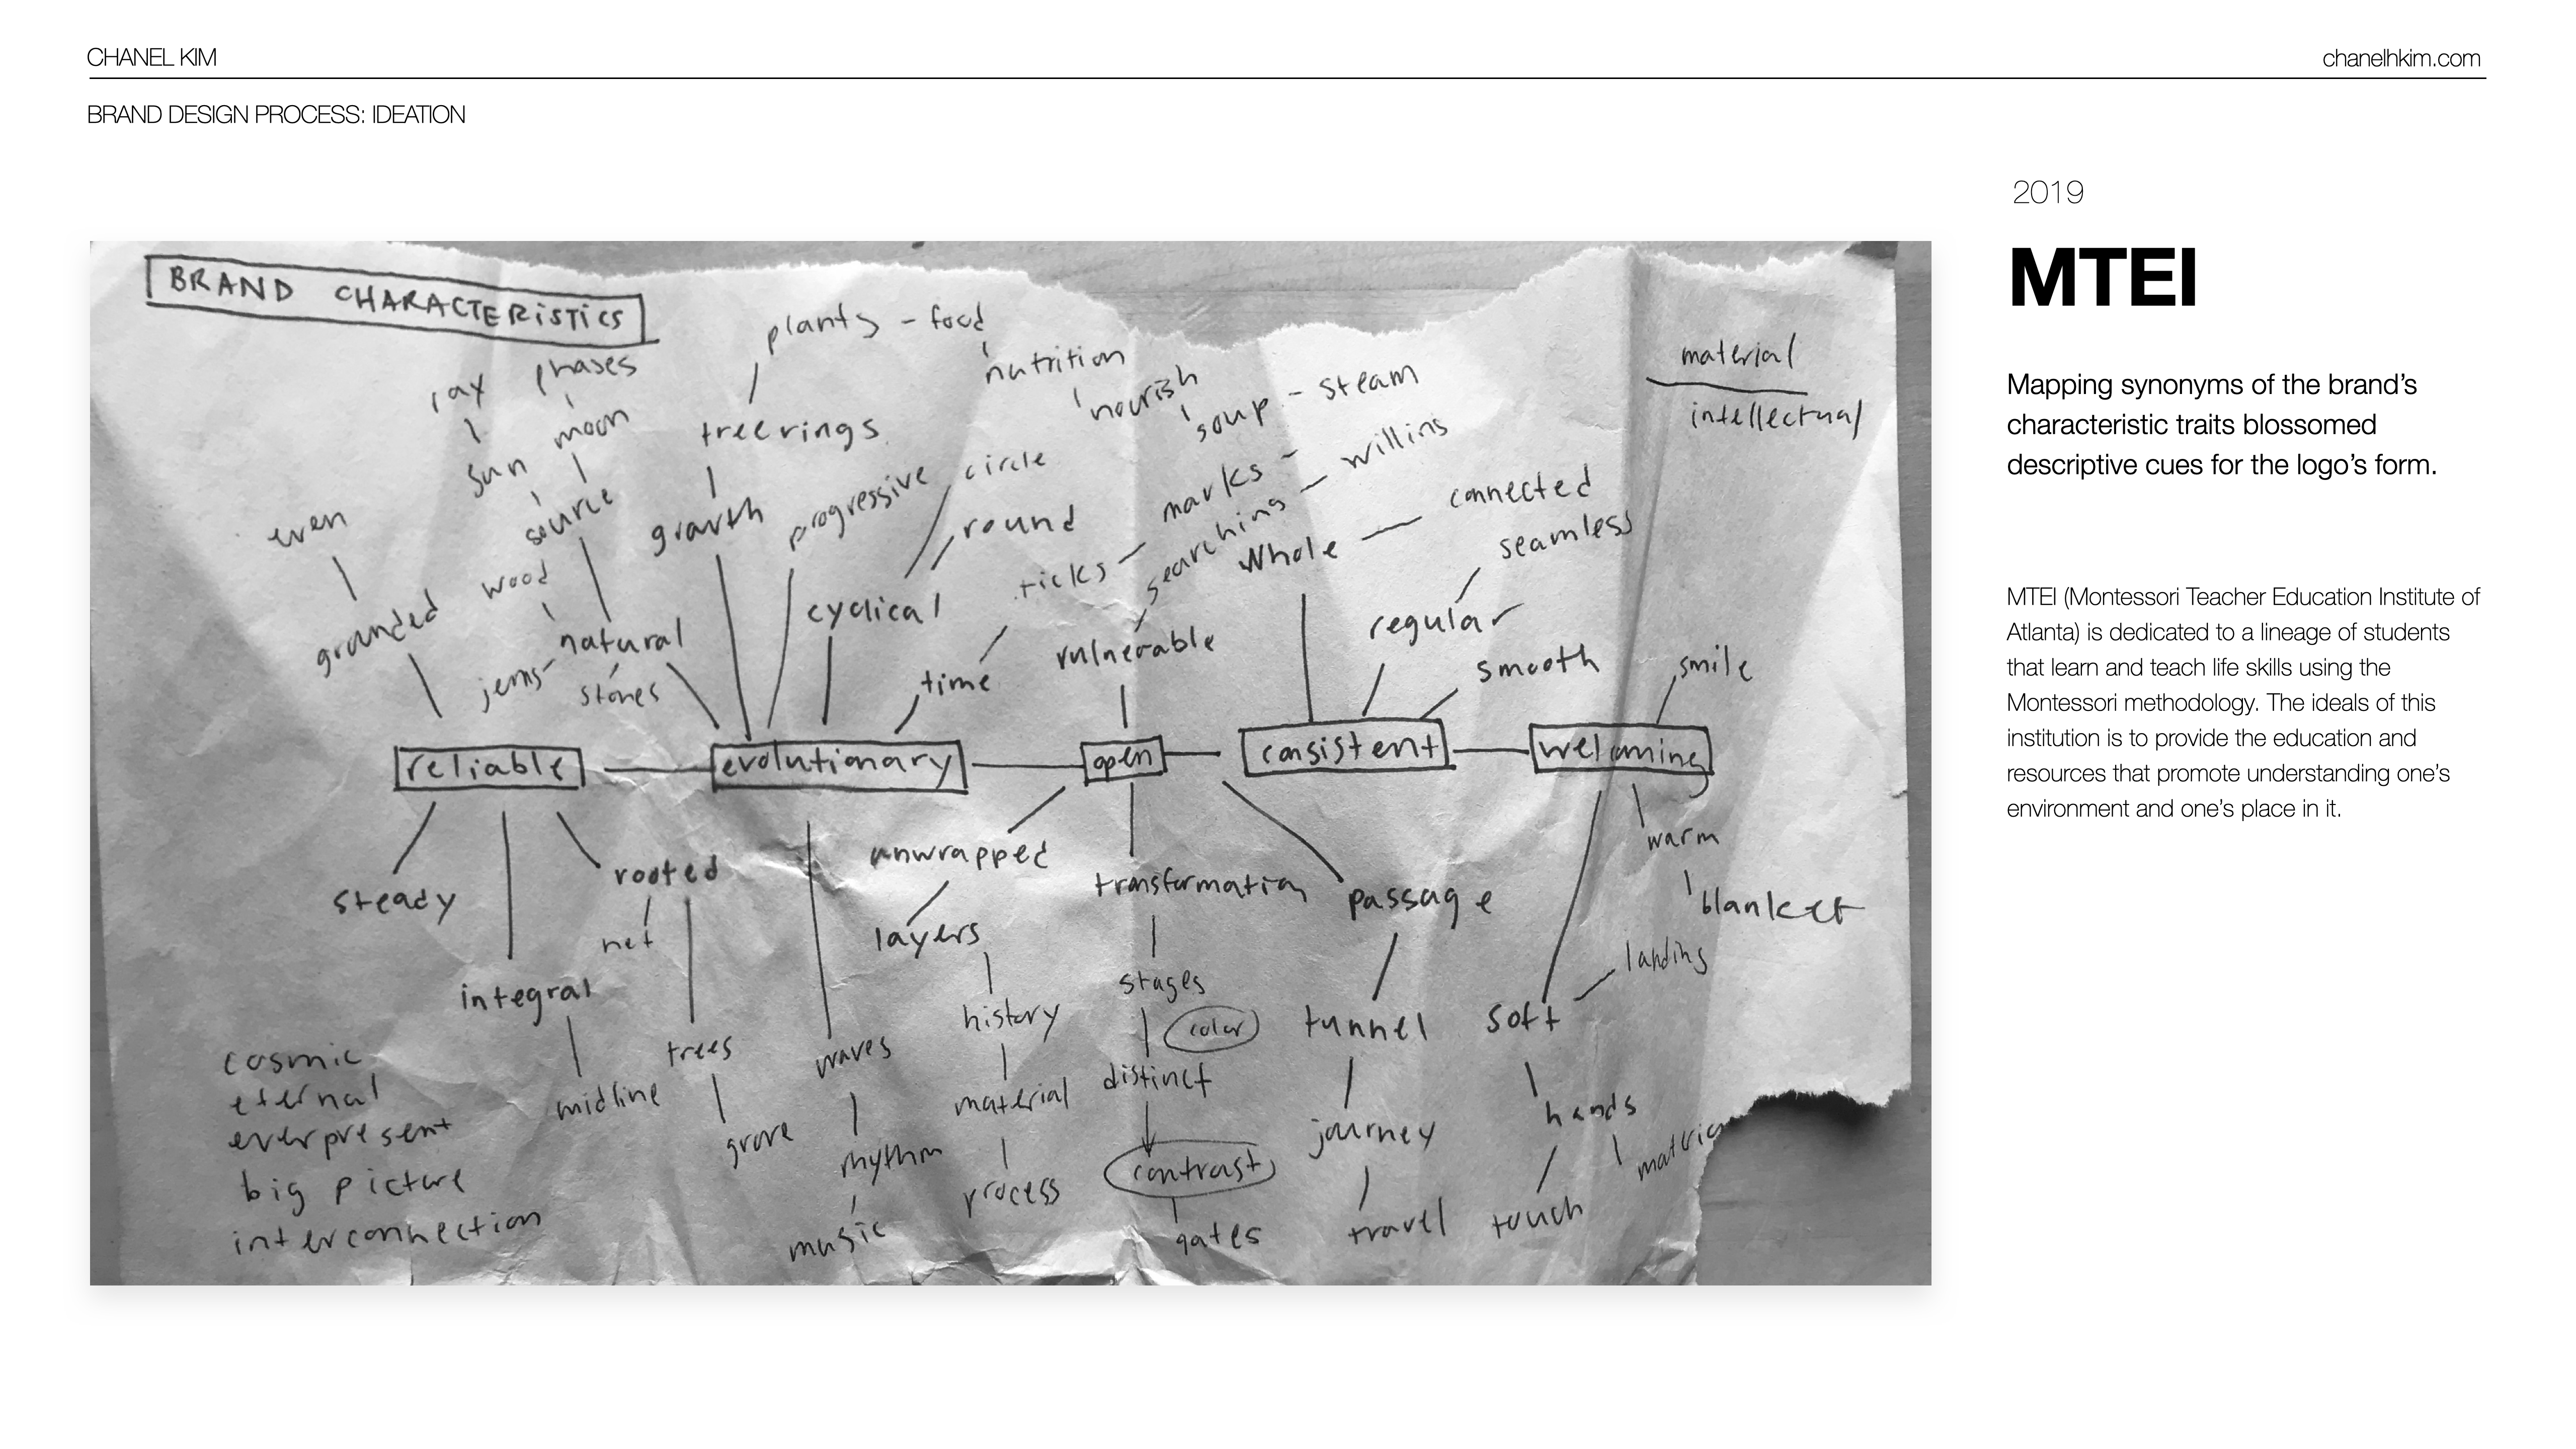 CHANEL KIM
chanelhkim.com
BRAND DESIGN PROCESS: IDEATION
2019
MTEI
Mapping synonyms of the brand's
characteristic traits blossomed
descriptive cues for the logo's form.
MTEI (Montessori Teacher Education Institute of
Atlanta) is dedicated to a lineage of students
that learn and teach life skills using the
Montessori methodology. The ideals of this
institution is to provide the education and
resources that promote understanding one's
environment and one's place in it.
BRAND CHARACTERISTICS
plants - food
nutrition
nourish
soup - steam
material
intellectual
ray
phases
sun
moon
source
treerings
growth
progressive
circle
round
ticks
marks
searching
willing
whole
connected
seamless
even
grounded
wood
natural
jems
stones
cyclical
time
vulnerable
regular
smooth
smile
reliable
evolutionary
open
consistent
welcoming
steady
rooted
net
integral
midline
trees
grove
waves
rhythm
music
unwrapped
layers
history
material
process
transformation
stages
color
distinct
contrast
gates
passage
tunnel
journey
travel
warm
blanket
landing
soft
hands
touch
cosmic
eternal
everpresent
big picture
interconnection